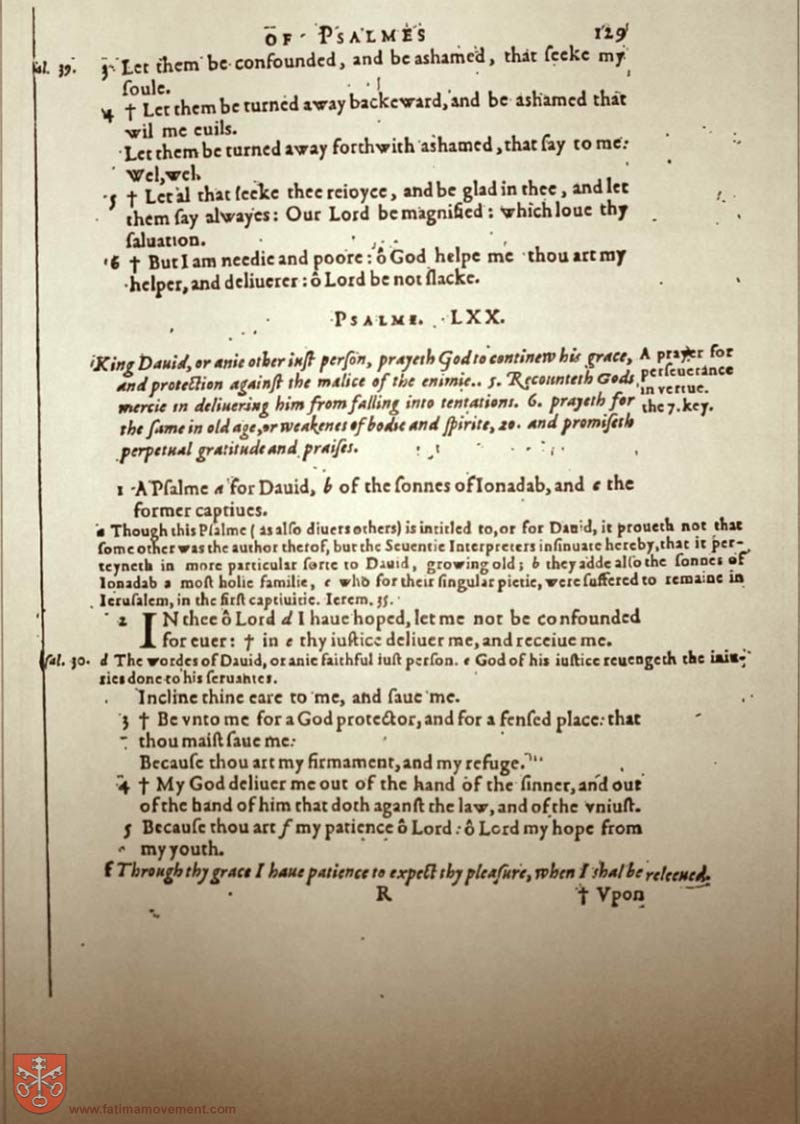 OF PSALMES 129
sal. 39. 3 Let them be confounded, and be ashamed, that ſeeke my
ſoule.
4 † Let them be turned away backeward, and be ashamed that
wil me euils.
Let them be turned away forthwith ashamed, that ſay to me:
Wel, wel.
5 † Let al that ſeeke thee reioyce, and be glad in thee, and let
them ſay alwayes: Our Lord be magnified: which loue thy
ſaluation.
6 † But I am needie and poore: ô God helpe me thou art my
helper, and deliuerer: ô Lord be not ſlacke.
PSALME. LXX.
King Dauid, or anie other iuſt perſon, prayeth God to continew his grace,
and protection againſt the malice of the enimie.. 5. Recounteth Gods
mercie in deliuering him from falling into tentations. 6. prayeth for
the ſame in old age, or weakenes of bodie and ſpirite, 20. and promiſeth
perpetual gratitude and praiſes.
A prayer for
perſeuerance
in vertue.
the 7. key.
1 A Pſalme a for Dauid, b of the ſonnes of Ionadab, and c the
former captiues.
a Though this Pſalme (as alſo diuers others) is intitled to, or for Dauid, it proueth not that
ſome other was the author therof, but the Seuentie Interpreters inſinuate hereby, that it per-
teyneth in more particular ſorte to Dauid, growing old; b they adde alſo the ſonnes of
Ionadab a moſt holie familie, c who for their ſingular pietie, were ſuffered to remaine in
Ieruſalem, in the firſt captiuitie. Ierem. 35.
2 IN thee ô Lord d I haue hoped, let me not be confounded
for euer: † in e thy iuſtice deliuer me, and receiue me.
ſal. 30. d The wordes of Dauid, or anie faithful iuſt perſon. e God of his iuſtice reuengeth the iniu-
ries done to his ſeruantes.
Incline thine eare to me, and ſaue me.
3 † Be vnto me for a God protector, and for a fenſed place: that
thou maiſt ſaue me:
Becauſe thou art my firmament, and my refuge.
4 † My God deliuer me out of the hand of the ſinner, and out
of the hand of him that doth aganſt the law, and of the vniuſt.
5 Becauſe thou art f my patience ô Lord: ô Lord my hope from
my youth.
f Through thy grace I haue patience to expect thy pleaſure, when I shal be releeued.
R † Vpon
www.fatimamovement.com